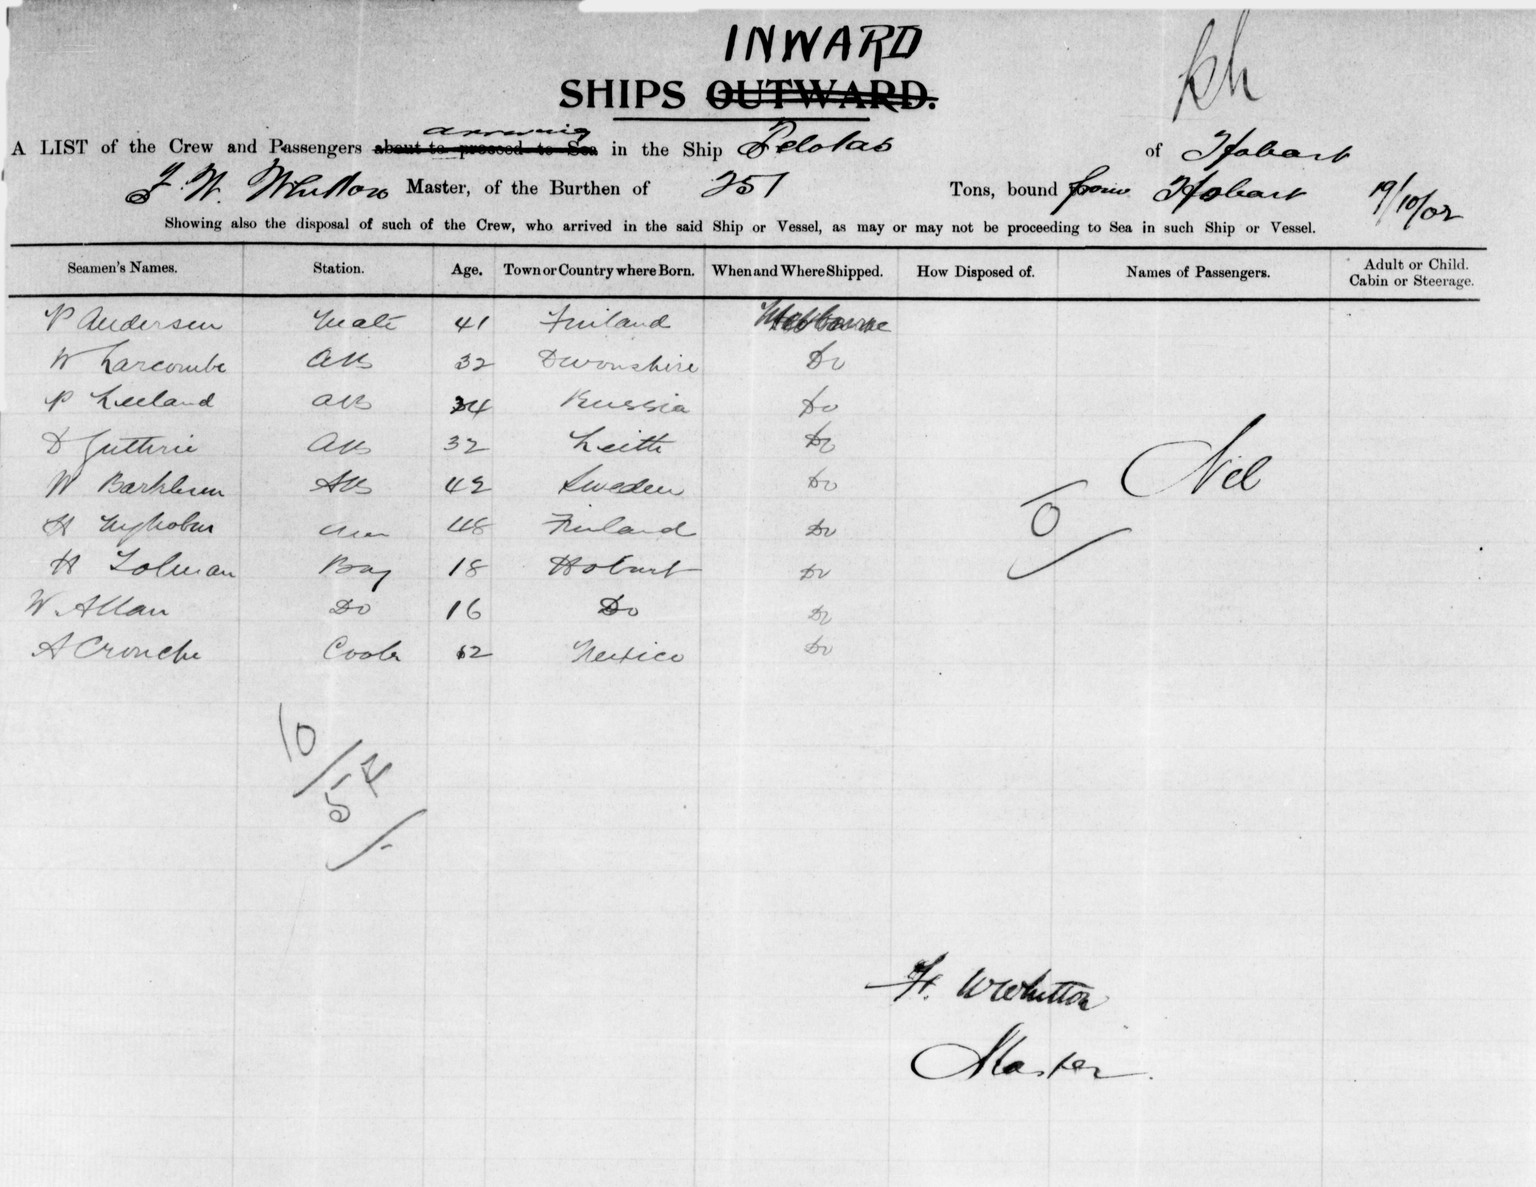 INWARD
SHIPS OUTWARD.
arriving
A LIST of the Crew and Passengers about to proceed to Sea in the Ship Pelotas of Hobart
F. W. Whitton Master, of the Burthen of 251 Tons, bound from Hobart 19/10/02
Showing also the disposal of such of the Crew, who arrived in the said Ship or Vessel, as may or may not be proceeding to Sea in such Ship or Vessel.
Seamen's Names. Station. Age. Town or Country where Born. When and Where Shipped. How Disposed of. Names of Passengers. Adult or Child. Cabin or Steerage.
P Andersen Mate 41 Finland Melbourne
W Larcombe AB 32 Devonshire Do
P Leeland AB 34 Russia Do
D Guthrie AB 32 Leith Do
W AB 42 Sweden Do
H 48 Finland Do
H Tolman Boy 18 Hobart Do
W. Allan Do 16 Do Do
A Crouche Cook 62 Mexico Do
Nil
0/
10/
54/-
F. W Whitton
Master